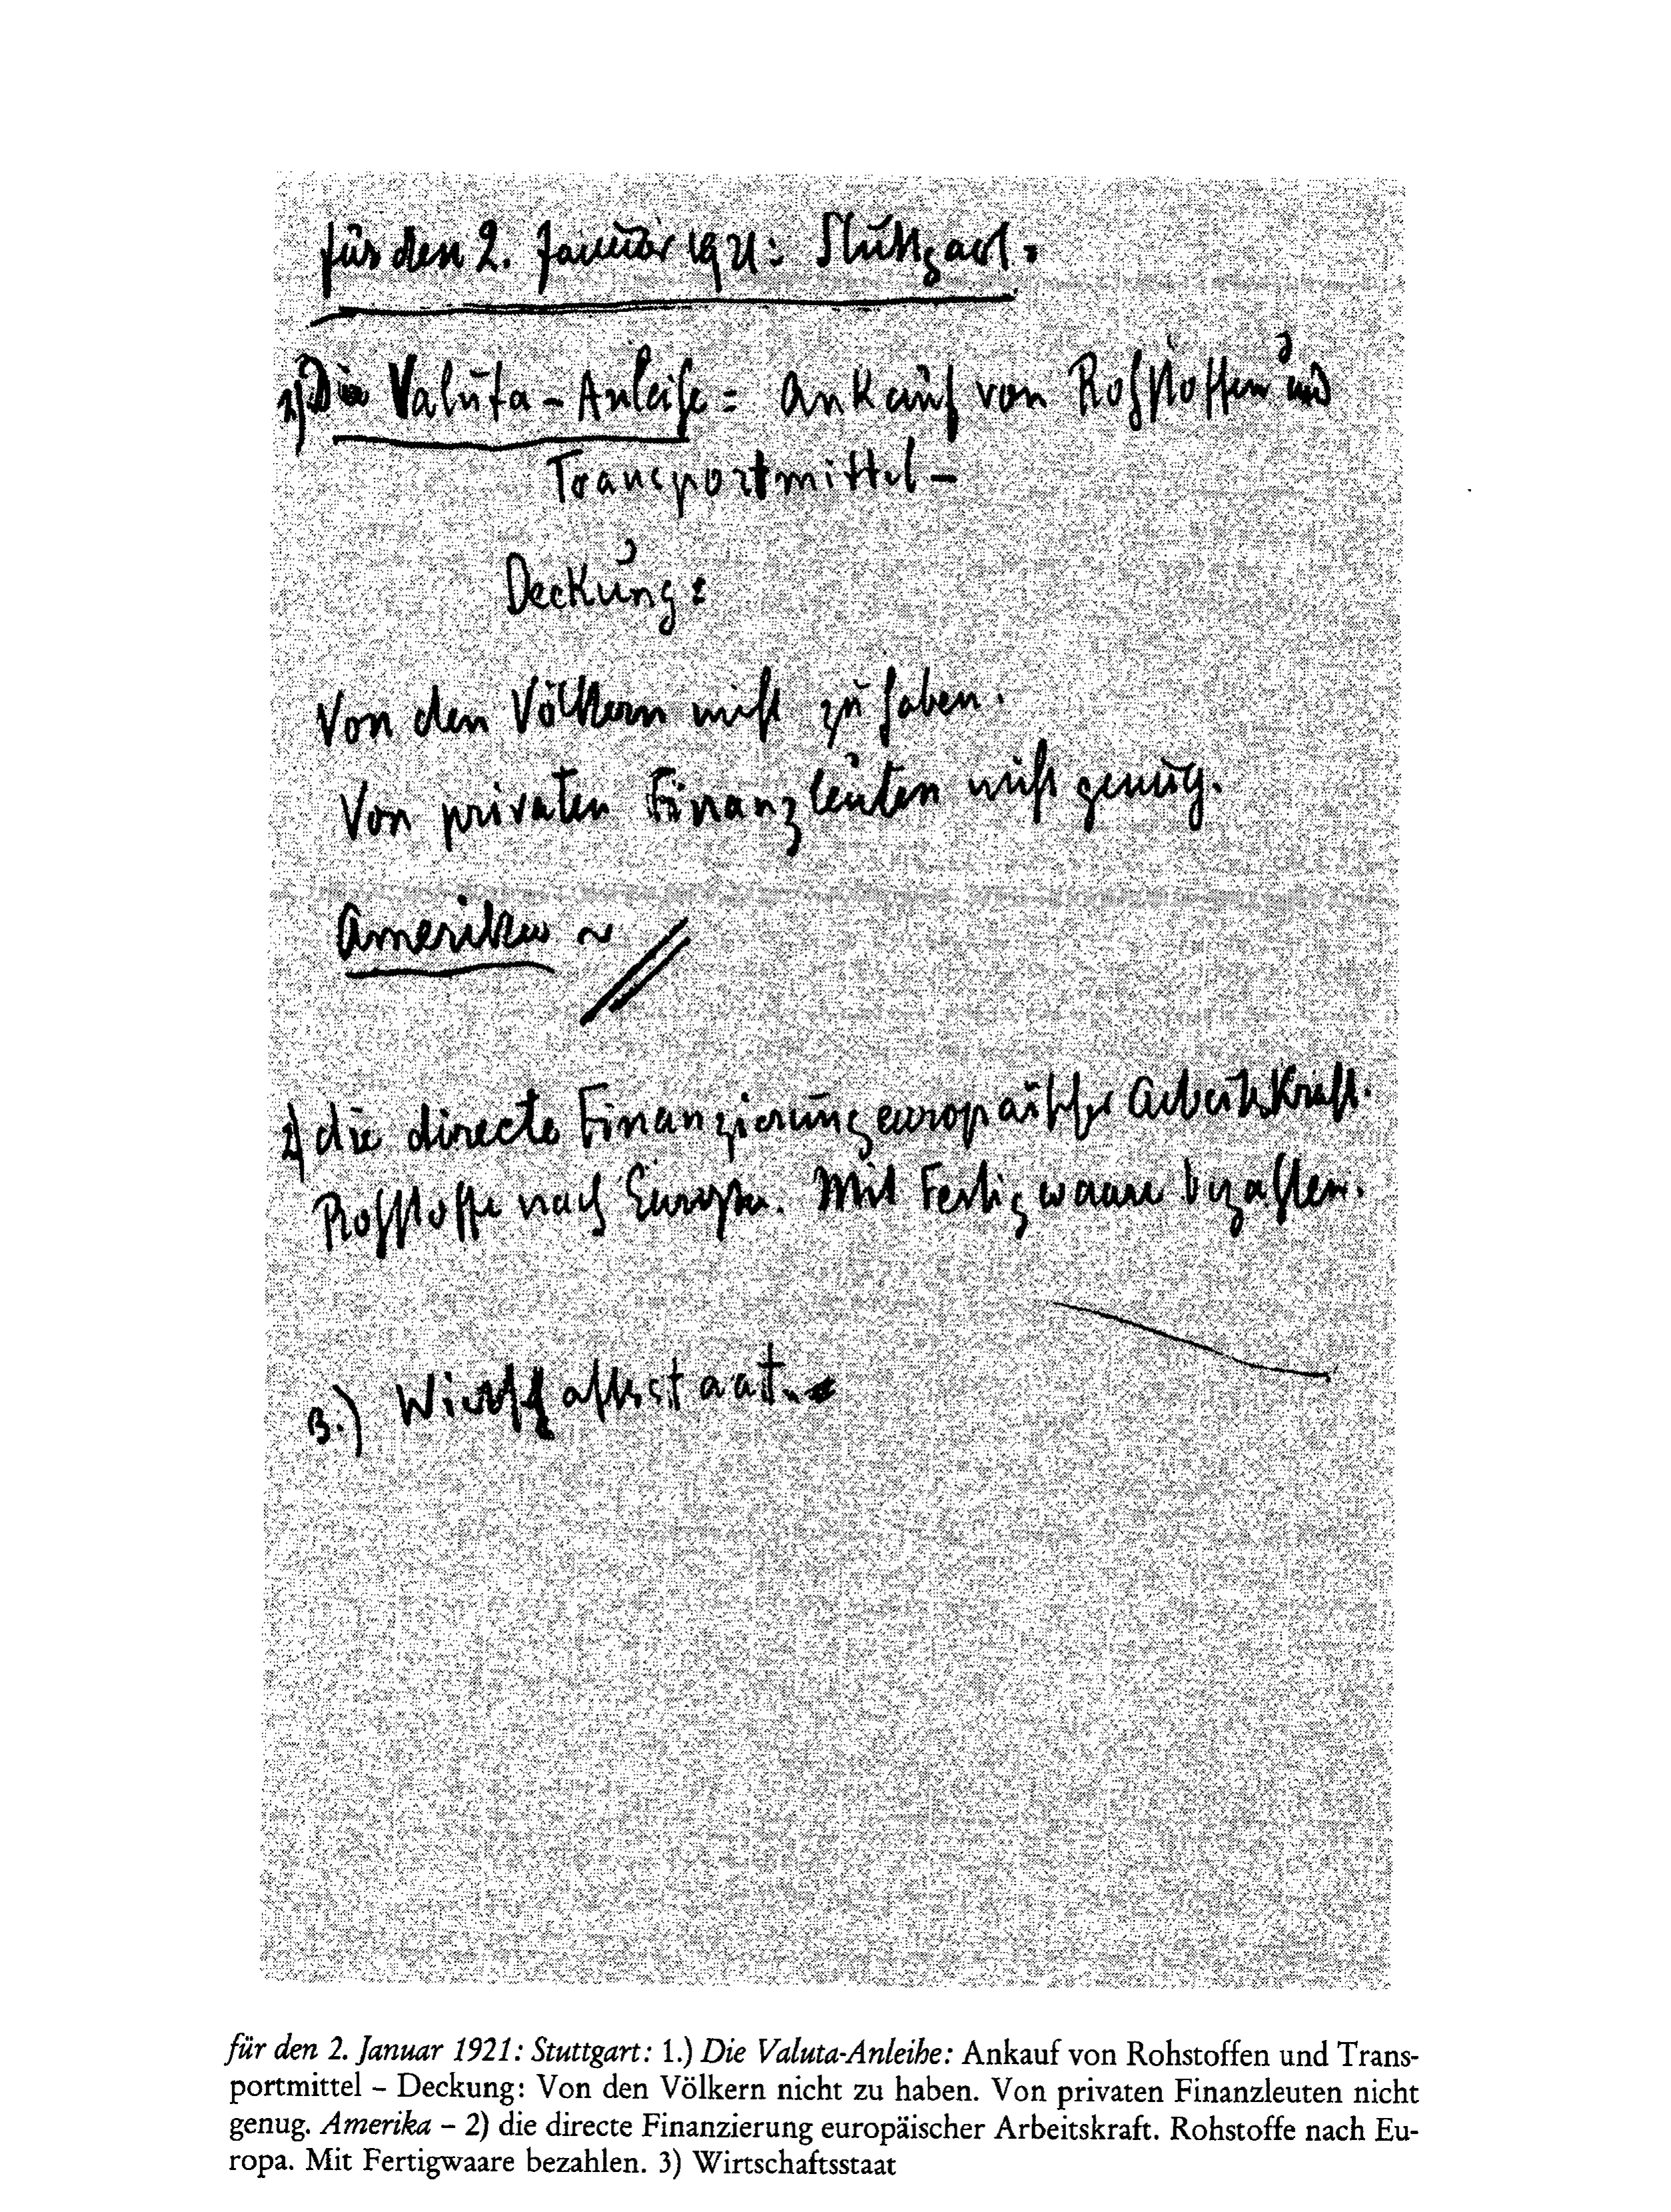 für den 2. Januar 1921: Stuttgart.
1.) Die Valuta-Anleihe: Ankauf von Rohstoffen und
Transportmittel –
Deckung:
Von den Völkern nicht zu haben.
Von privaten Finanzleuten nicht genug.
Amerika ~
2) die directe Finanzierung europäischer Arbeitskraft.
Rohstoffe nach Europa. Mit Fertigwaare bezahlen.
3.) Wirtschaftsstaat.
für den 2. Januar 1921: Stuttgart: 1.) Die Valuta-Anleihe: Ankauf von Rohstoffen und Trans-
portmittel – Deckung: Von den Völkern nicht zu haben. Von privaten Finanzleuten nicht
genug. Amerika – 2) die directe Finanzierung europäischer Arbeitskraft. Rohstoffe nach Eu-
ropa. Mit Fertigwaare bezahlen. 3) Wirtschaftsstaat